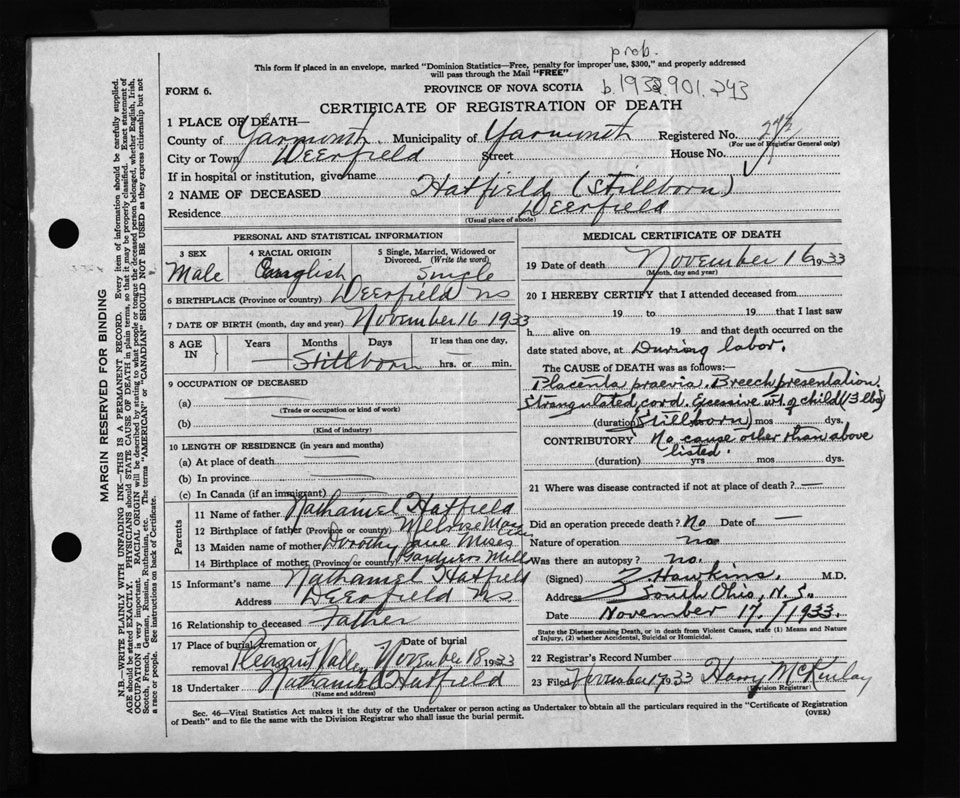 prob.
This form if placed in an envelope, marked "Dominion Statistics—Free, penalty for improper use, $300," and properly addressed
will pass through the Mail "FREE"
b. 1933.901.243
FORM 6.
PROVINCE OF NOVA SCOTIA
CERTIFICATE OF REGISTRATION OF DEATH
1 PLACE OF DEATH—
County of Yarmouth Municipality of Yarmouth Registered No. 243
(For use of Registrar General only)
City or Town Deerfield Street House No.
If in hospital or institution, give name
2 NAME OF DECEASED Hatfield (Stillborn)
Residence Deerfield
(Usual place of abode)
PERSONAL AND STATISTICAL INFORMATION
3 SEX 4 RACIAL ORIGIN 5 Single, Married, Widowed or
Divorced. (Write the word)
Male English Single
6 BIRTHPLACE (Province or country) Deerfield NS
7 DATE OF BIRTH (month, day and year) November 16 1933
8 AGE IN Years Months Days If less than one day,
Stillborn hrs. or min.
9 OCCUPATION OF DECEASED
(a)
(Trade or occupation or kind of work)
(b)
(Kind of industry)
10 LENGTH OF RESIDENCE (in years and months)
(a) At place of death
(b) In province
(c) In Canada (if an immigrant)
Parents
11 Name of father Nathaniel Hatfield
12 Birthplace of father (Province or country) Melrose Mass
13 Maiden name of mother Dorothy Jane Mises
14 Birthplace of mother (Province or country) Gardner Mills
15 Informant's name Nathaniel Hatfield
Address Deerfield NS
16 Relationship to deceased Father
17 Place of burial, cremation or removal Pleasant Valley Date of burial November 18 1933
18 Undertaker Nathaniel Hatfield
(Name and address)
MEDICAL CERTIFICATE OF DEATH
19 Date of death November 16 1933
(Month, day and year)
20 I HEREBY CERTIFY that I attended deceased from
19 to 19 that I last saw
h alive on 19 and that death occurred on
date stated above, at During labor.
The CAUSE OF DEATH was as follows:—
Placenta praevia. Breech presentation.
Strangulated cord. Excessive wt. of child (13 lbs)
(duration) (Stillborn) mos dys.
CONTRIBUTORY No cause other than above
listed.
(duration) yrs mos dys.
21 Where was disease contracted if not at place of death? —
Did an operation precede death? No Date of —
Nature of operation no
Was there an autopsy? no.
(Signed) Hawkins. M.D.
Address South Ohio, N.S.
Date November 17, 1933.
State the Disease causing Death, or in death from Violent Causes, state (1) Means and Nature
of Injury, (2) whether Accidental, Suicidal or Homicidal.
22 Registrar's Record Number
23 Filed November 17 1933 Harry McKinlay
(Division Registrar)
Sec. 46—Vital Statistics Act makes it the duty of the Undertaker or person acting as Undertaker to obtain all the particulars required in the "Certificate of Registration
of Death" and to file the same with the Division Registrar who shall issue the burial permit.
(OVER)
MARGIN RESERVED FOR BINDING
N.B.—WRITE PLAINLY WITH UNFADING INK—THIS IS A PERMANENT RECORD. Every item of information should be carefully supplied.
AGE should be stated EXACTLY. PHYSICIANS should STATE CAUSE OF DEATH in plain terms, so that it may be properly classified. Exact statement of
OCCUPATION is very important. RACIAL ORIGIN will be described by stating to what people or tongue the deceased person belonged, whether English, Irish,
Scotch, French, German, Russian, Ruthenian, etc. The terms "AMERICAN" or "CANADIAN" SHOULD NOT BE USED as they express citizenship but not
a race or people. See instructions on back of Certificate.